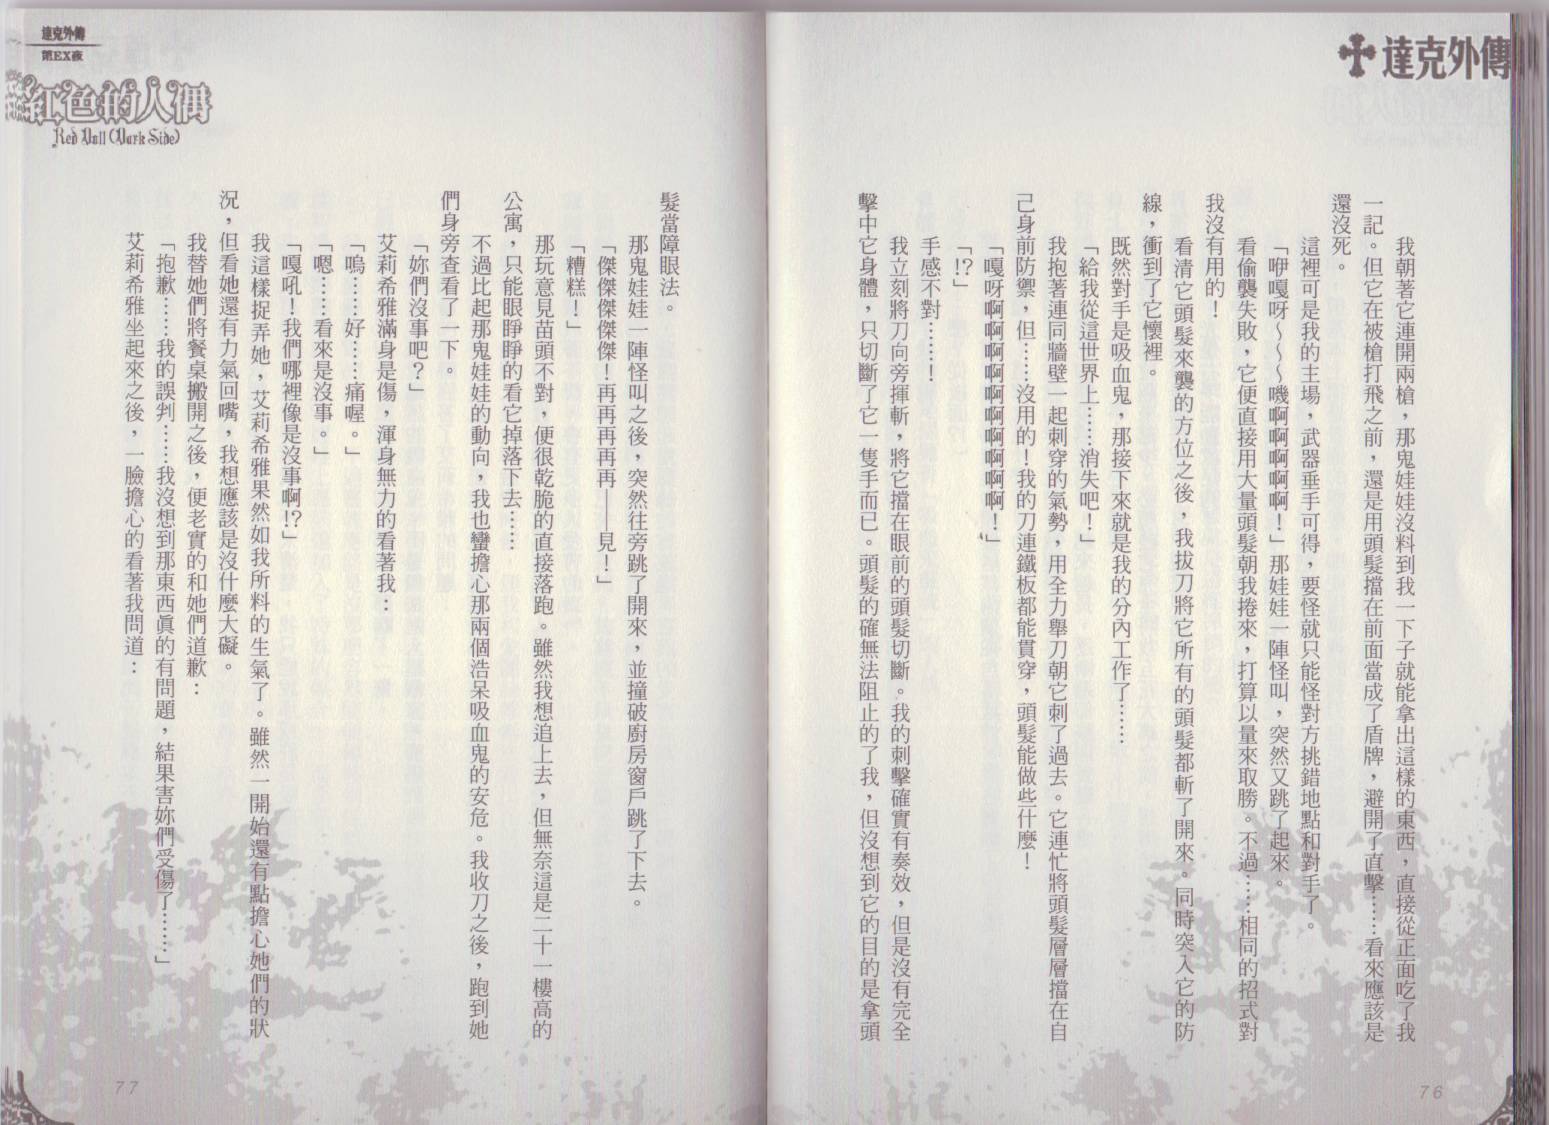 達克外傳
我朝著它連開兩槍，那鬼娃娃沒料到我一下子就能拿出這樣的東西，直接從正面吃了我
一記。但它在被槍打飛之前，還是用頭髮擋在前面當成了盾牌，避開了直擊……看來應該是
還沒死。
這裡可是我的主場，武器垂手可得，要怪就只能怪對方挑錯地點和對手了。
「咿嘎呀～～～嘰啊啊啊啊！」那娃娃一陣怪叫，突然又跳了起來。
看偷襲失敗，它便直接用大量頭髮朝我捲來，打算以量來取勝。不過……相同的招式對
我沒有用的！
看清它頭髮來襲的方位之後，我拔刀將它所有的頭髮都斬了開來。同時突入它的防
線，衝到了它懷裡。
既然對手是吸血鬼，那接下來就是我的分內工作了……
「給我從這世界上……消失吧！」
我抱著連同牆壁一起刺穿的氣勢，用全力舉刀朝它刺了過去。它連忙將頭髮層層擋在自
己身前防禦，但……沒用的！我的刀連鐵板都能貫穿，頭髮能做些什麼！
「嘎呀啊啊啊啊啊啊啊啊啊！」
「!?」
手感不對………！
我立刻將刀向旁揮斬，將它擋在眼前的頭髮切斷。我的刺擊確實有奏效，但是沒有完全
擊中它身體，只切斷了它一隻手而已。頭髮的確無法阻止的了我，但沒想到它的目的是拿頭
76
達克外傳
第EX夜
紅色的人偶
Red Doll (Dark Side)
髮當障眼法。
那鬼娃娃一陣怪叫之後，突然往旁跳了開來，並撞破廚房窗戶跳了下去。
「傑傑傑傑傑！再再再再再——見！」
「糟糕！」
那玩意見苗頭不對，便很乾脆的直接落跑。雖然我想追上去，但無奈這是二十一樓高的
公寓，只能眼睜睜的看它掉落下去……
不過比起那鬼娃娃的動向，我也蠻擔心那兩個浩呆吸血鬼的安危。我收刀之後，跑到她
們身旁查看了一下。
「妳們沒事吧？」
艾莉希雅滿身是傷，渾身無力的看著我：
「嗚……好……痛喔。」
「嗯……看來是沒事。」
「嘎吼！我們哪裡像是沒事啊!?」
我這樣捉弄她，艾莉希雅果然如我所料的生氣了。雖然一開始還有點擔心她們的狀
況，但看她還有力氣回嘴，我想應該是沒什麼大礙。
我替她們將餐桌搬開之後，便老實的和她們道歉：
「抱歉……我的誤判……我沒想到那東西真的有問題，結果害妳們受傷了………」
艾莉希雅坐起來之後，一臉擔心的看著我問道：
77